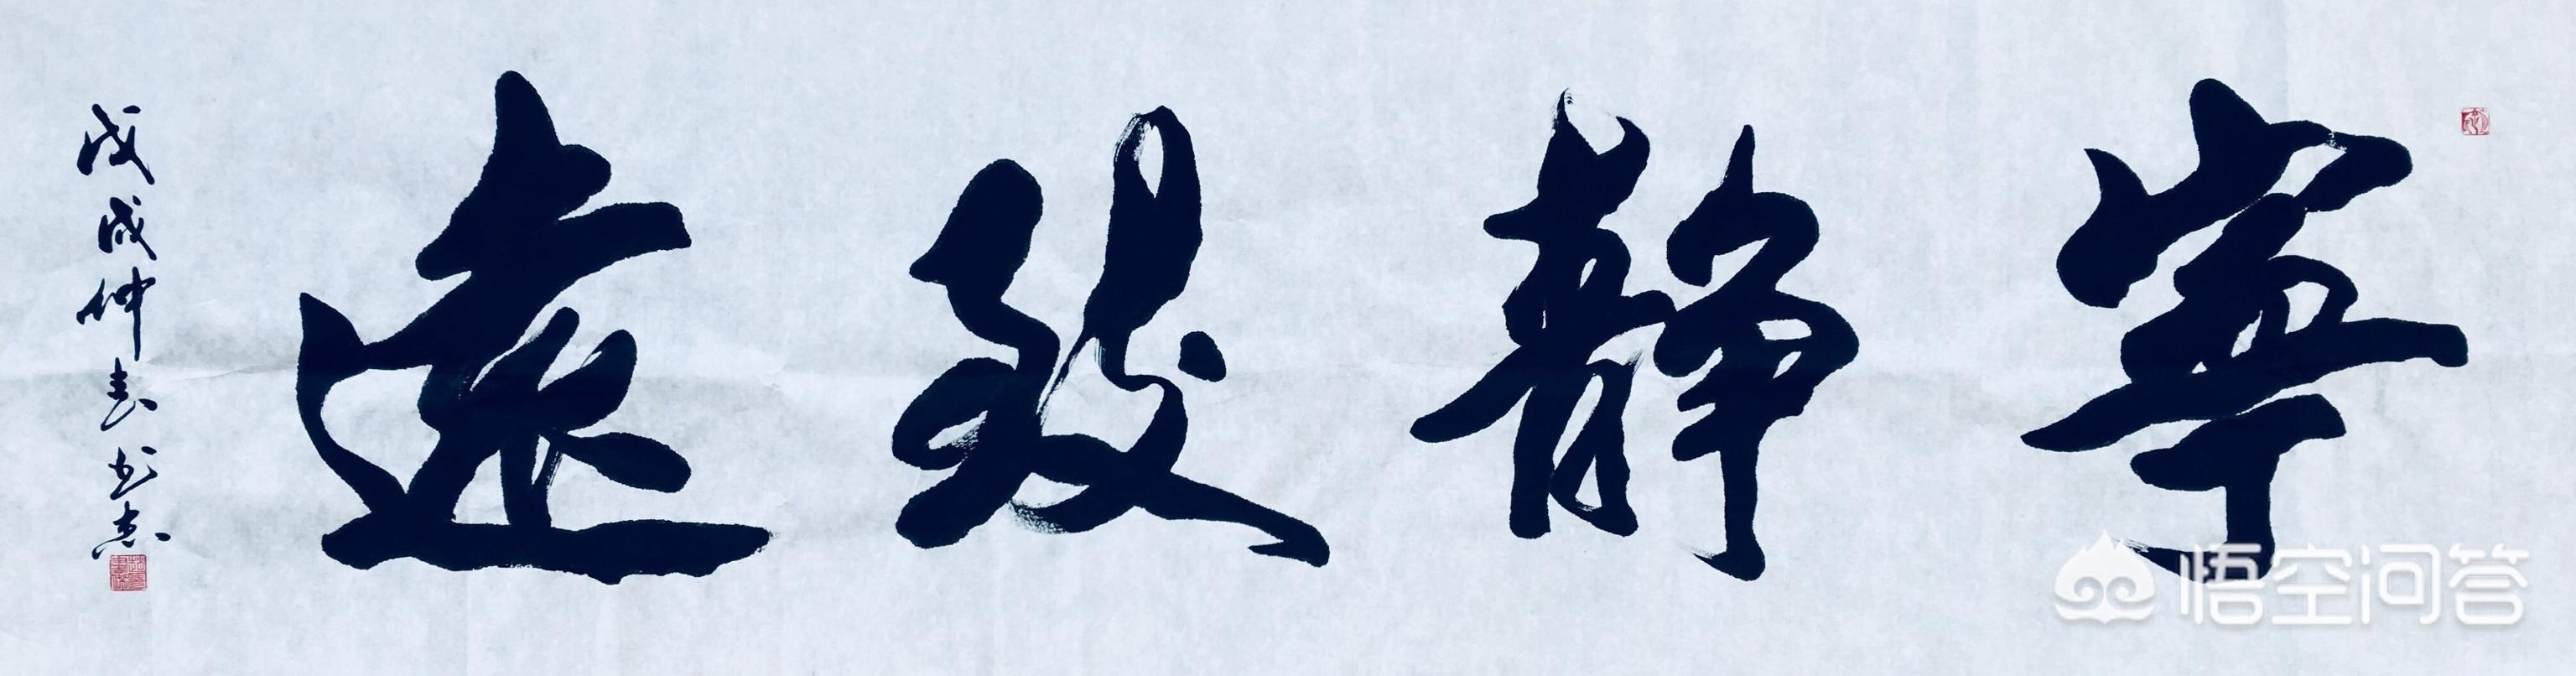 寧靜致遠
戊戌仲春書志
悟空问答